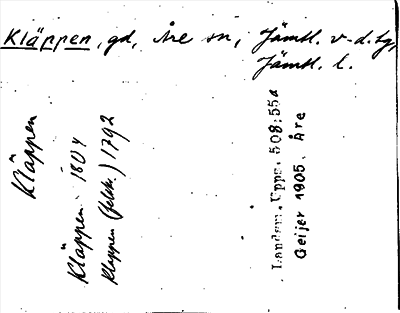 Kläppen, gd, Åre sn, Jämtl. v-d. tg,
Jämtl. l.
Kläppen
Kläppen 1804
Kläppen (folkr.) 1792
Landsm. Upps. 508:55a
Geijer 1905. Åre